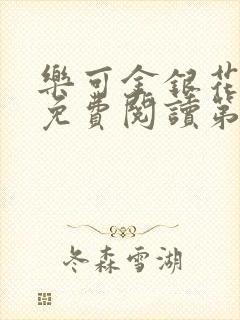 樂可金銀花
免費閱讀第
冬森雪湖